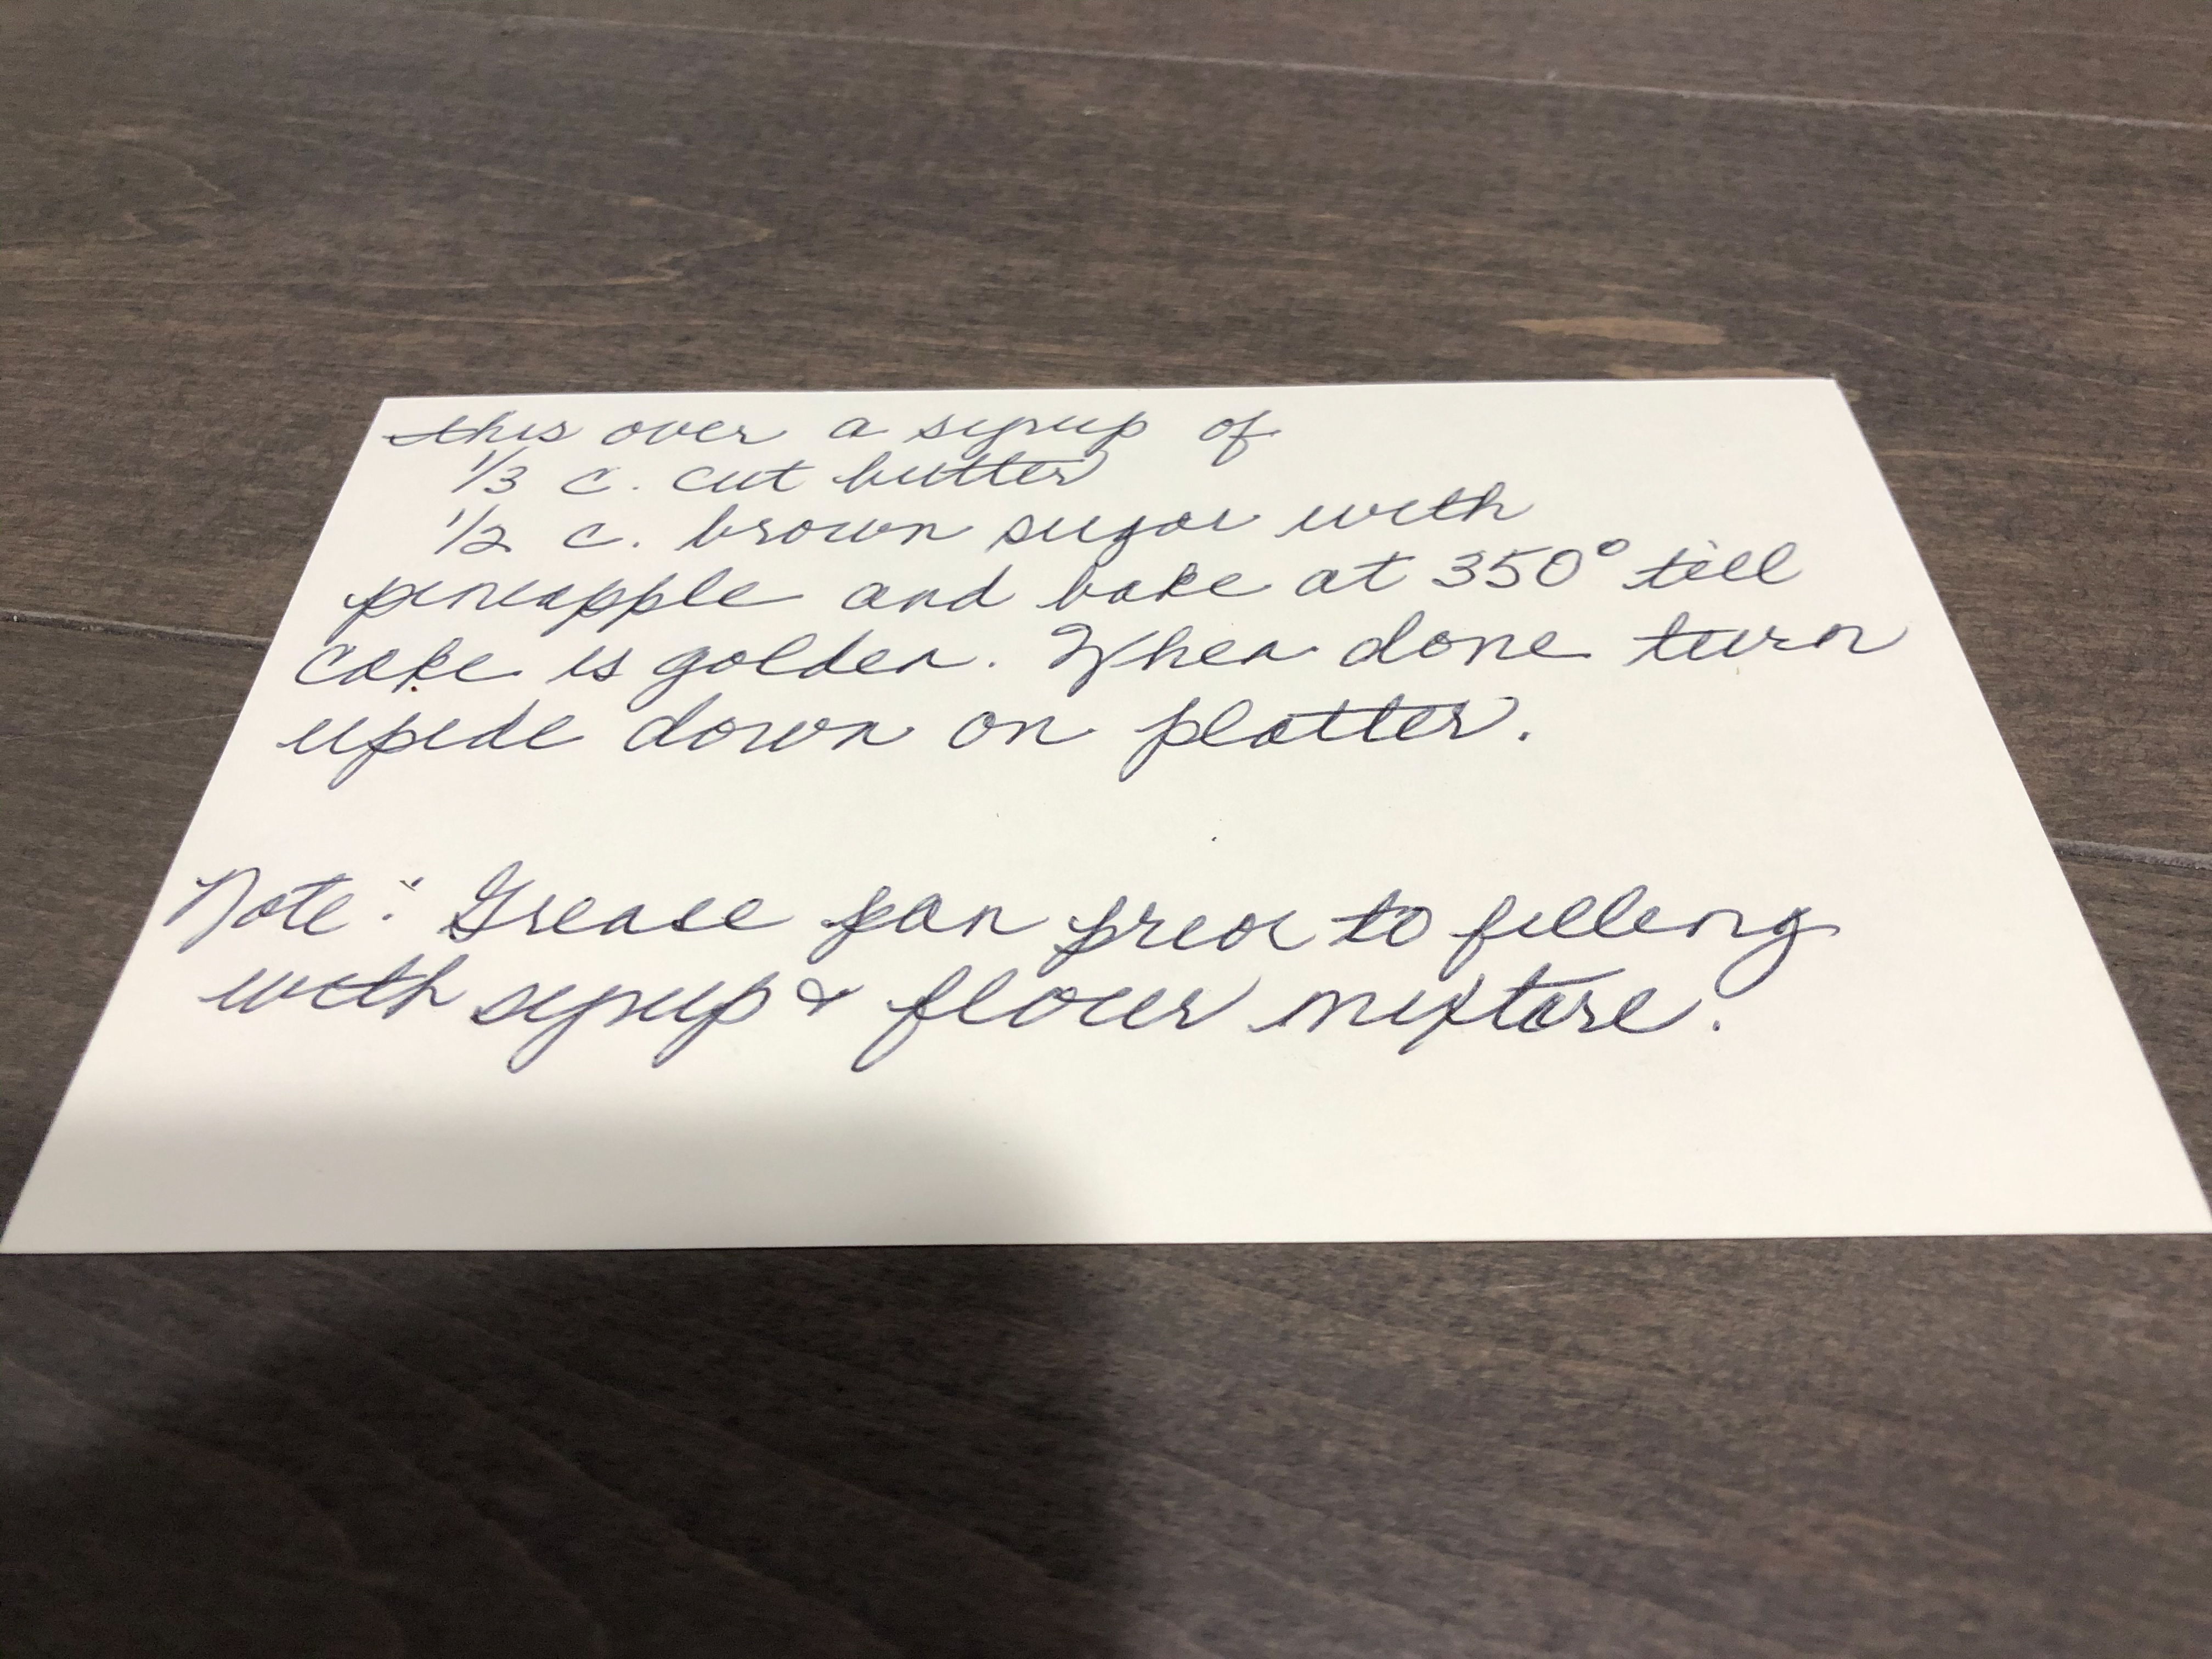 this over a syrup of
1/3 c. cut butter
1/2 c. brown sugar with
pineapple and bake at 350° till
cake is golden. When done turn
upside down on platter.
Note: Grease pan prior to filling
with syrup & flour mixture.